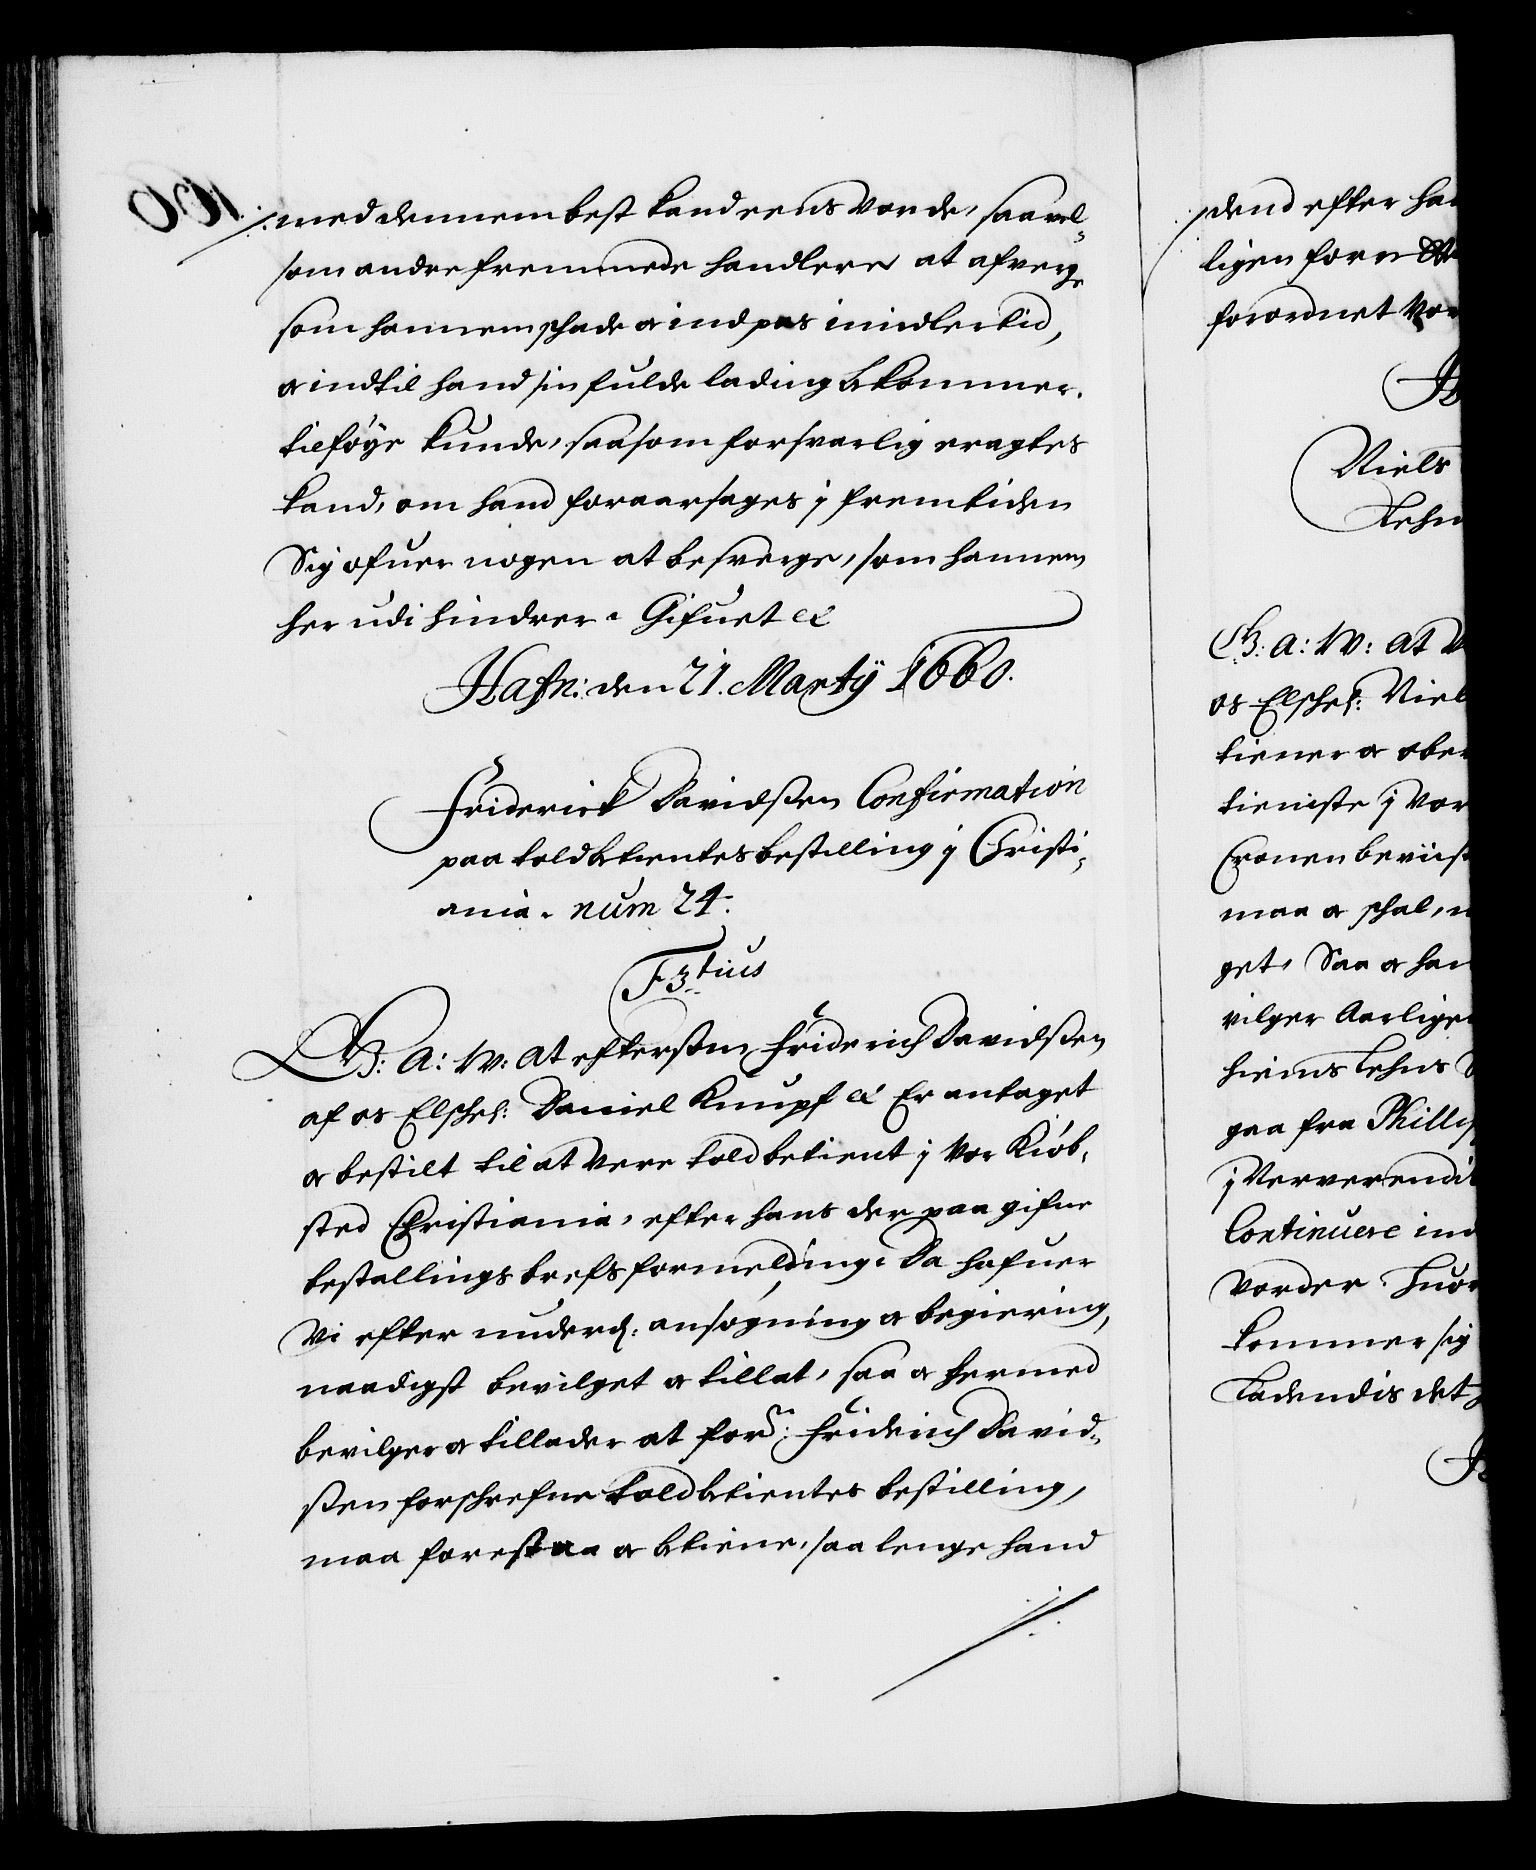 med dennem best kand eens vorde, saavel-
som andre fremmede handlere at afverge
som hannem schade o indpas imidlertid,
o indtil hand sin fulde lading bekommer,
tilføye kunde, saasom forsvarlig eragtes
kand, om hand foraarsages j fremtiden
Sig ofuer nogen at besverge, som hannem
her udi hindrer. Gifuet &
Hafn: den 21. Martij 1660.
Friderick Davidssen Confirmation
paa toldbetientes bestilling j Christi-
ania. num 24.
F3tius
G: A: W: At eftersom Friderich Davidssen
af os Elschel: Daniel Knupf & Er antaget
o bestilt til at vere toldbetient j vor Kiøb-
sted Christiania, efter hans der paa gifne
bestallings brefs formelding. Da hafuer
Vi efter underd: ansøgning o begiering,
naadigst bevilget o tillat, saa o hermed
bevilger o tillader at for.ne Friderich David-
sten forschrefne toldbetientes bestilling,
maa forestaa o betiene, saa lenge hand
dend efter
ligen
forordnet
Niels
Lehn
G: A: W: At
os Elschel: Niel
tiener o ober
tieniste j vor
Cronen beviist
maa o schal,
get, Saa o
vilger Aarlige
hiems Lehns
gaa fra Phillip
j Ververendis
Continuere ind
vorder. Huor
kommer sig
Ladendis det